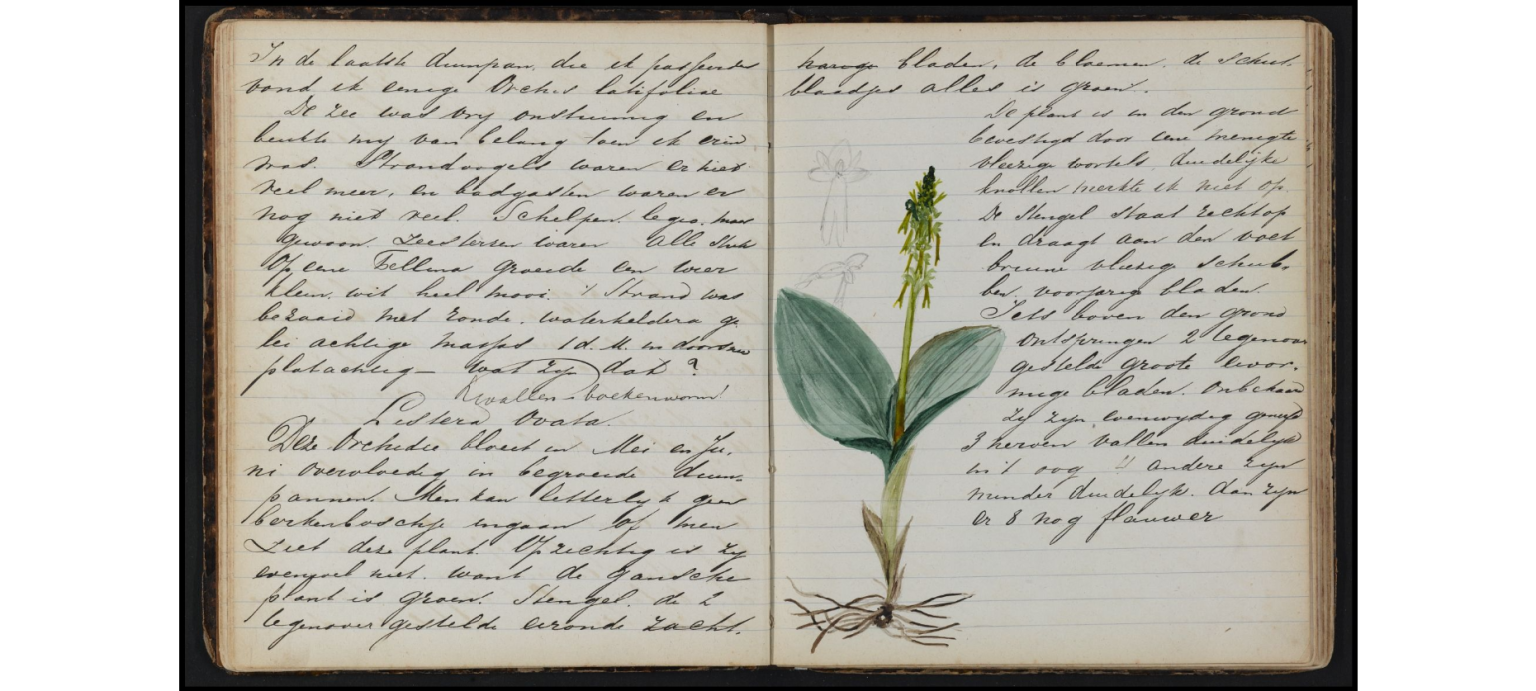 In de laatste duinpan, die ik passeerde
vond ik eenige Orchis latifoliae
De zee was vry onstuimig en
beukte my van belang toen ik erin
was. Strandvogels waren er niet
veel meer, en badgasten waren er
nog niet veel. Schelpen legio, maar
gewoon. Zeesterren waren alle stuk
Op eene Tellina groeide een wier
klein, wit heel mooi. 't Strand was
bezaaid met ronde, waterheldere ge
lei achtige massas 1 d.M. in doorsnee
platachtig — wat zyn dat?
Kwallen boekenworm!
Listera Ovata.
Deze Orchidee bloeit in Mei en Ju-
ni overvloedig in begroeide duin-
pannen. Men kan letterlyk geen
berkenboschje ingaan of men
ziet deze plant. Opzichtig is zy
evenwel niet. want de gansche
plant is groen. Stengel, de 2
tegenover gestelde eironde zacht-
harige bladen, de bloemen, de schut-
blaadjes alles is groen.
De plant is in den grond
bevestigd door eene menigte
vleezige wortels duidelijke
knollen merkte ik niet op.
De Stengel staat rechtop
en draagt aan den voet
bruine vliezig schub-
ben. voorjarig bladen.
Iets boven den grond
ontspringen 2 tegenover
gestelde groote eivor-
mige bladen. Onbehaard
zy zyn evenwydig generfd
3 nerven vallen duidelyk
in 't oog andere zyn
minder duidelyk. dan zyn
er 8 nog flauwer